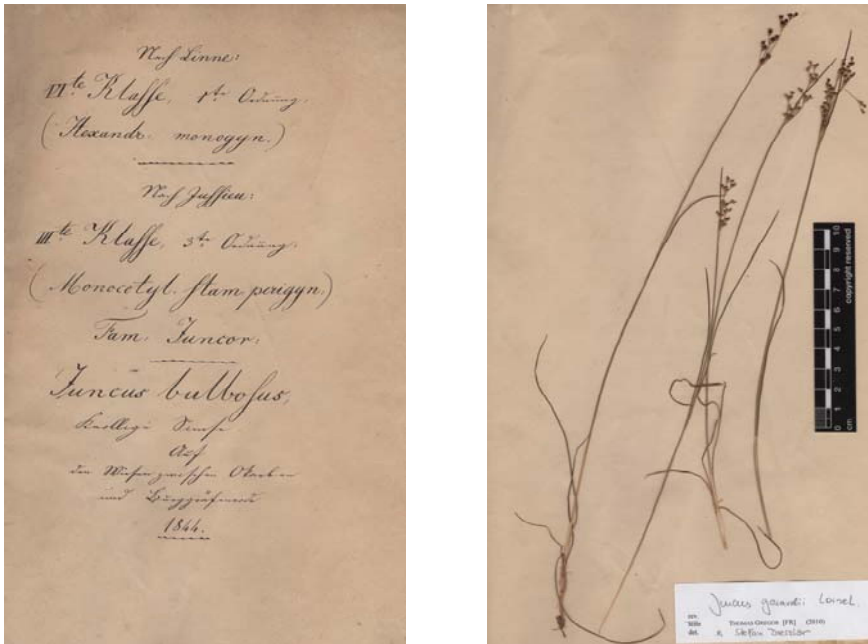 Nach Linne:
VI.te Klasse, 1te Ordnung.
(Hexandr. monogyn.)
Nach Jussieu:
III.te Klasse, 3te Ordnung.
(Monocotyl. stam. perigyn.)
Fam. Juncor:
Juncus bulbosus,
Knollige Simse
Auf
den Wiesen zwischen Okarben
und Burggräfenrode
1844.
0 1 2 3 4 5 6 7 8 9 10
cm
copyright reserved
Juncus gerardii Loisel.
rev.
THOMAS GREGOR [FR] (2010)
det. & Stefan Dressler